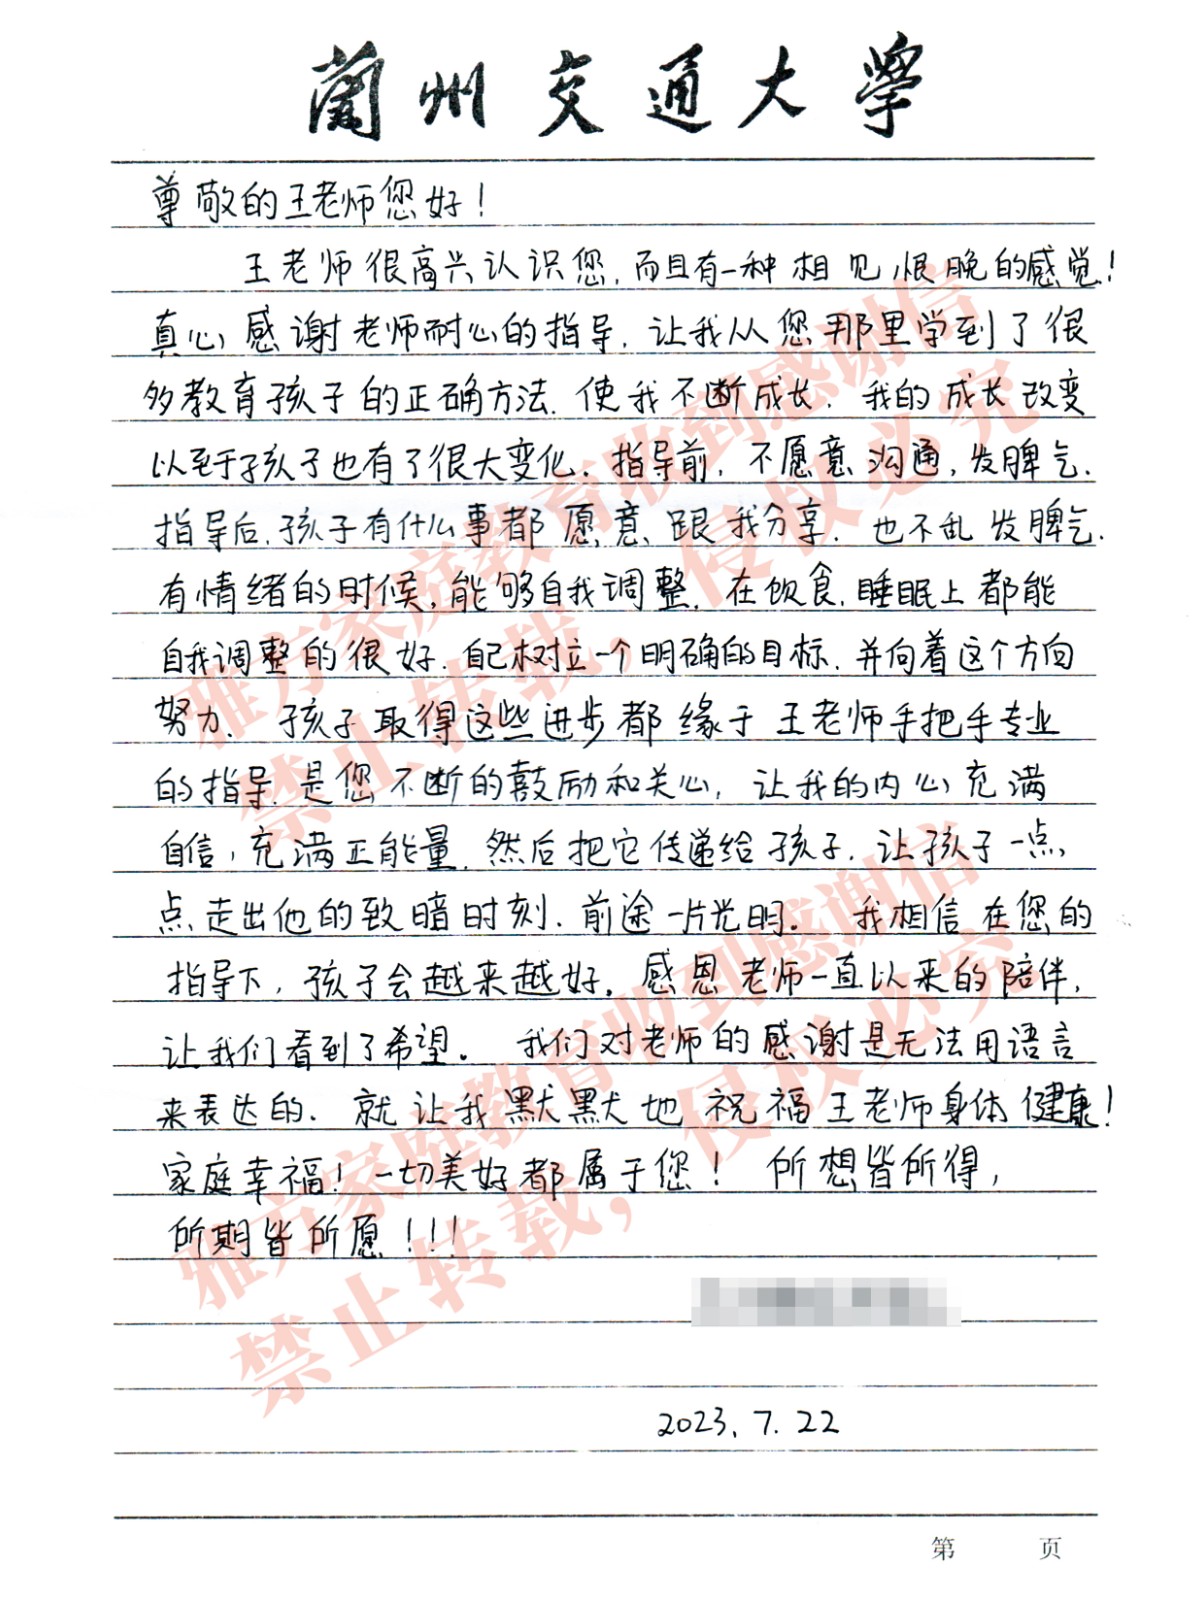 蘭州交通大學
尊敬的王老师您好！
王老师很高兴认识您，而且有一种相见恨晚的感觉！
真心感谢老师耐心的指导，让我从您那里学到了很
多教育孩子的正确方法，使我不断成长，我的成长改变
以至于孩子也有了很大变化。指导前，不愿意沟通，发脾气，
指导后，孩子有什么事都愿意跟我分享，也不乱发脾气，
有情绪的时候，能够自我调整，在饮食，睡眠上都能
自我调整的很好，自己树立一个明确的目标，并向着这个方向
努力，孩子取得这些进步都缘于王老师手把手专业
的指导，是您不断的鼓励和关心，让我的内心充满
自信，充满正能量，然后把它传递给孩子，让孩子一点
点走出他的致暗时刻，前途一片光明。我相信在您的
指导下，孩子会越来越好。感恩老师一直以来的陪伴，
让我们看到了希望。我们对老师的感谢是无法用语言
来表达的，就让我默默地祝福王老师身体健康！
家庭幸福！一切美好都属于您！所想皆所得，
所期皆所愿！！！
2023.7.22
第 页
雅方家庭教育收到感谢信
禁止转载，侵权必究
雅方家庭教育收到感谢信
禁止转载，侵权必究